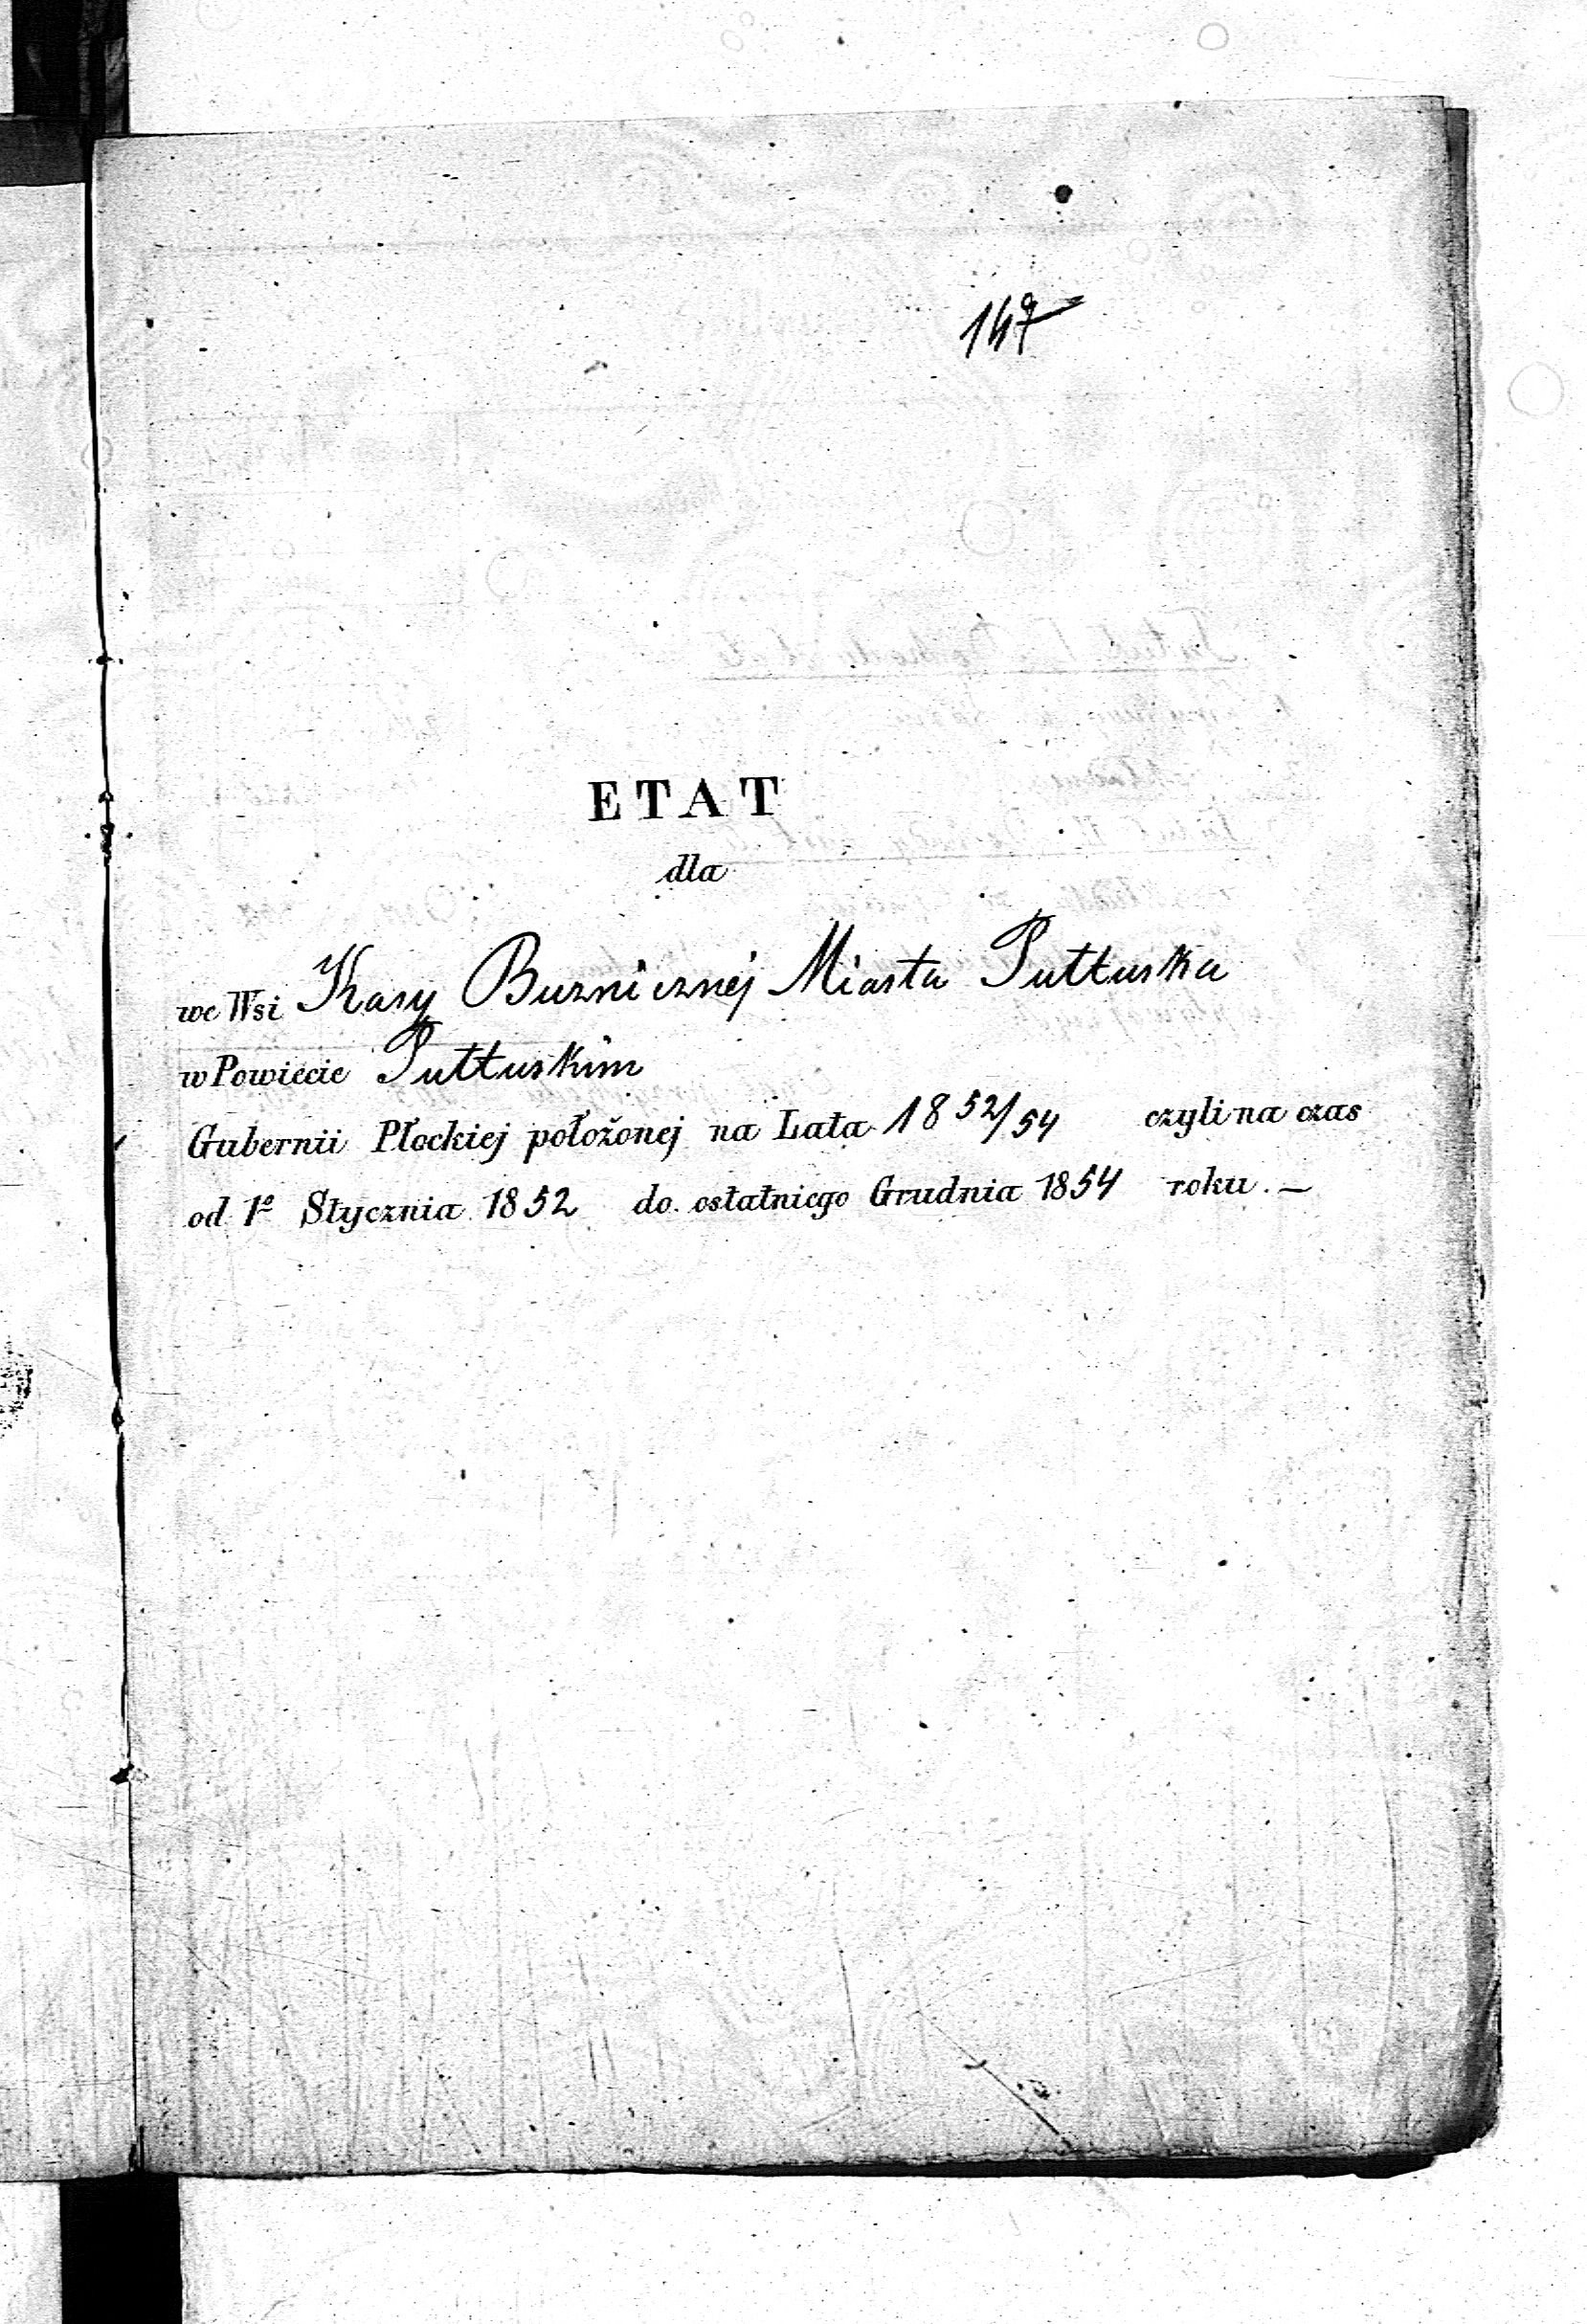 147
ETAT
dla
we Wsi Kasy Buznicznéj Miasta Pułtuska
w Powiecie Pułtuskim
Gubernii Płockiej położonej na Lata 1852/54 czyli na czas
od 1º Stycznia 1852 do ostatniego Grudnia 1854 roku. —